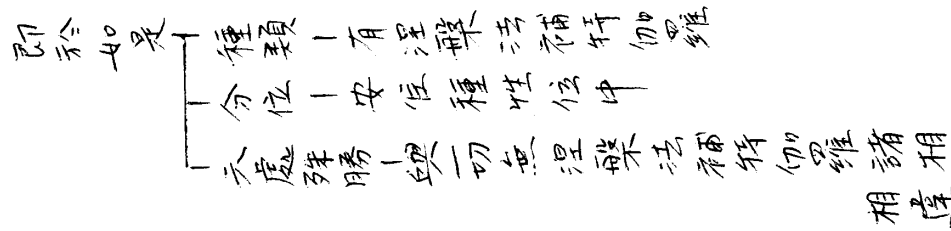 即於如是
種類－有涅槃法補特伽羅
分位－安住種性位中
六處殊勝－與一切無涅槃法補特伽羅諸相
相違